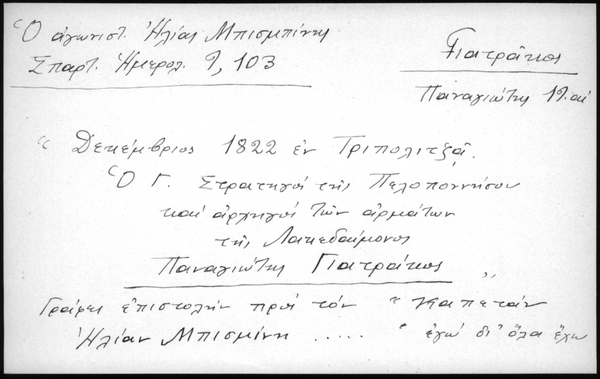 Ὁ ἀγωνιστ. Ἠλίας Μπισμπίνης
Σπαρτ. Ἡμερολ. 9, 103
Γιατράκος
Παναγιώτης 19. αἰ
" Δεκέμβριος 1822 ἐν Τριπολιτζᾷ.
Ὁ Γ. Στρατηγός τῆς Πελοποννήσου
καί ἀρχηγός τῶν ἁρμάτων
τῆς Λακεδαίμονος
Παναγιώτης Γιατράκος "
Γράφει ἐπιστολήν πρός τόν " Καπετάν
Ἠλίαν Μπισμίνη ..... " ἐγώ δι' ὅλα ἔχω